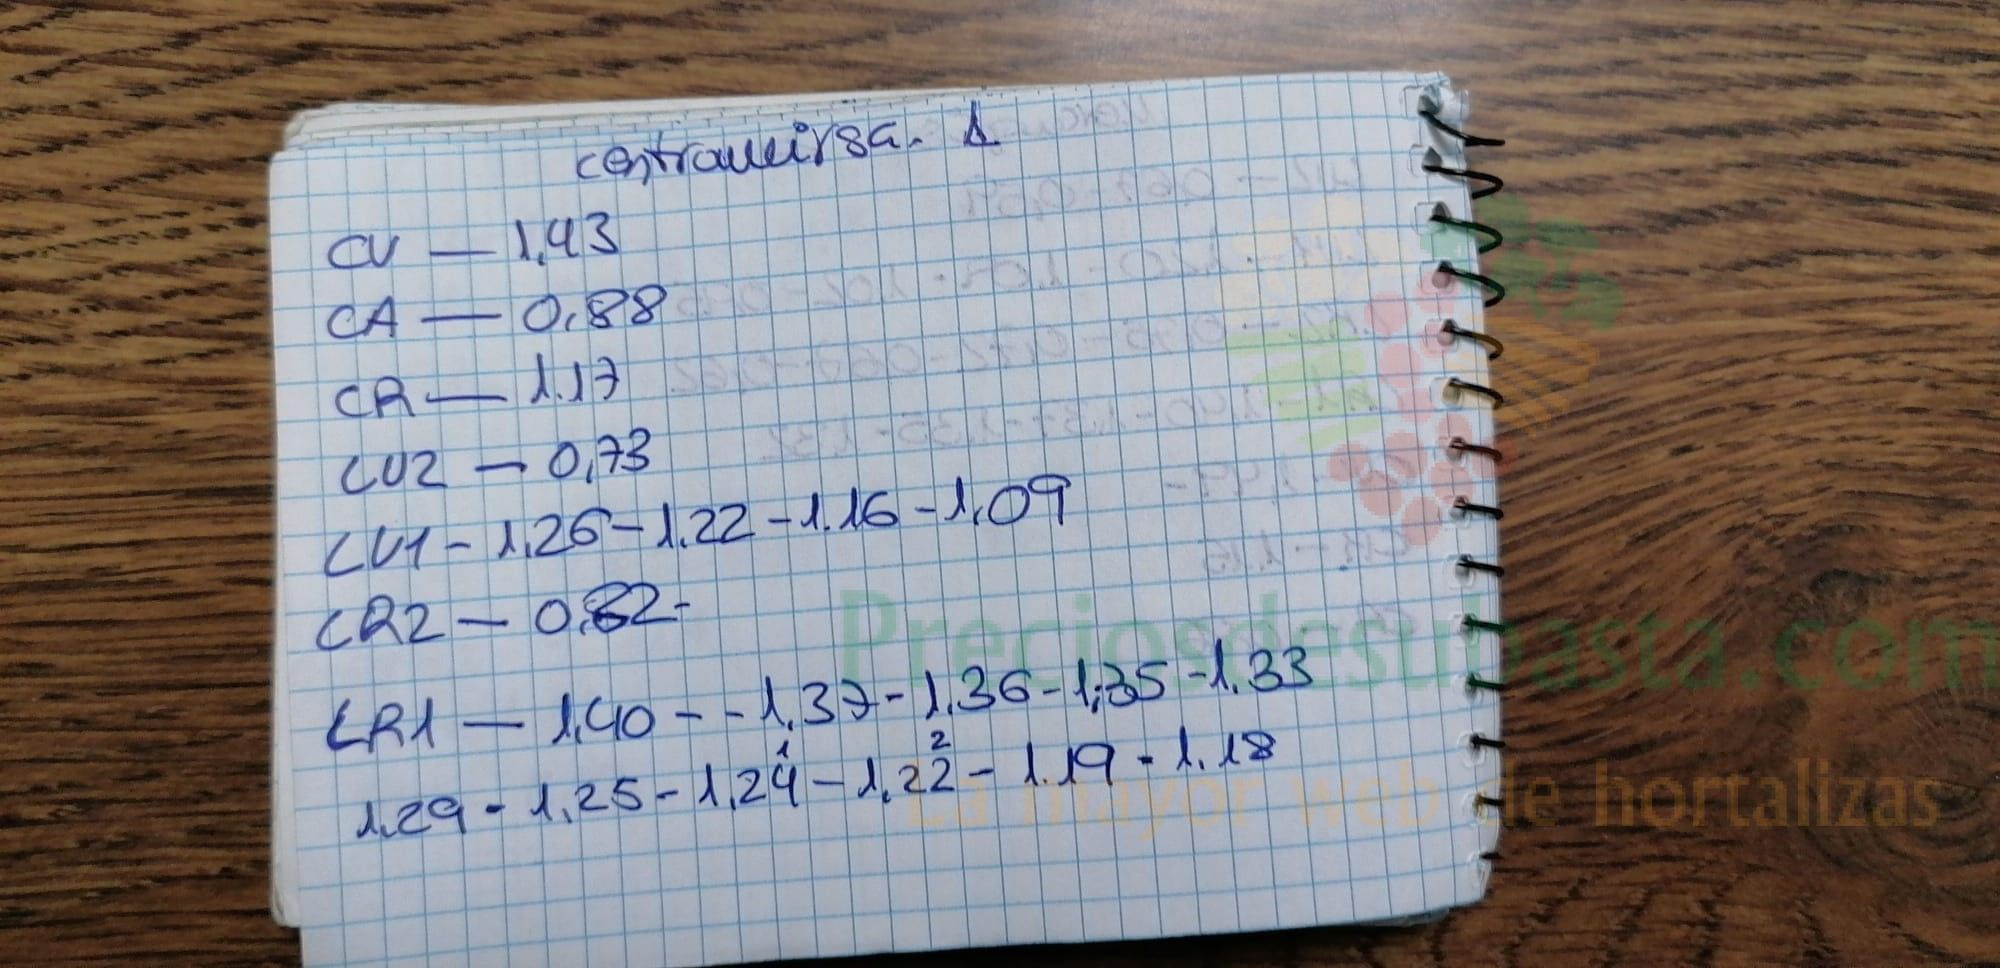 centraueirsa. 1
CV — 1,43
CA — 0,88
CR — 1.17
LV2 — 0,73
LV1 - 1,26 - 1.22 - 1.16 - 1,09
LR2 — 0,82-
LR1 — 1,40 - - 1,37 - 1,36 - 1,35 - 1,33
1 2
1,29 - 1,25 - 1,24 - 1,22 - 1.19 - 1.18
Preciosdesubasta.com
La mayor web de hortalizas